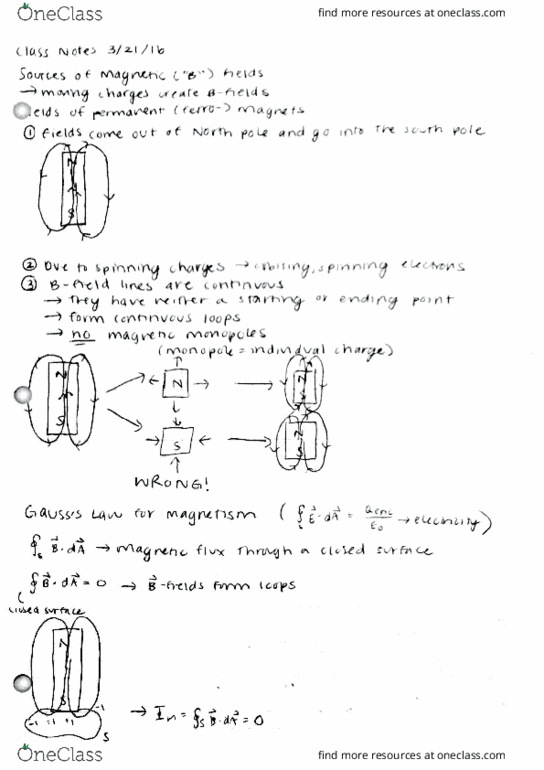 OneClass find more resources at oneclass.com
Class Notes 3/21/16
Sources of Magnetic ("B") fields
→ moving charges create B-fields
ields of permanent (ferro-) magnets
① fields come out of North pole and go into the south pole
N
S
② Due to spinning charges → orbiting, spinning electrons
③ B-field lines are continuous
→ They have neither a starting or ending point
→ form continuous loops
→ no magnetic monopoles
(monopole = individual charge)
N
S
N
S
N
S
N
S
WRONG!
Gauss's Law for magnetism (∮ E⃗·dA⃗ = Qenc/ε0 → electricity)
∮s B⃗·dA⃗ → magnetic flux through a closed surface
∮ B⃗·dA⃗ = 0 → B⃗-fields form loops
closed surface
N
S
-1 -1 +1 +1 S
→ = ∮s B⃗·dA⃗ = 0
OneClass find more resources at oneclass.com